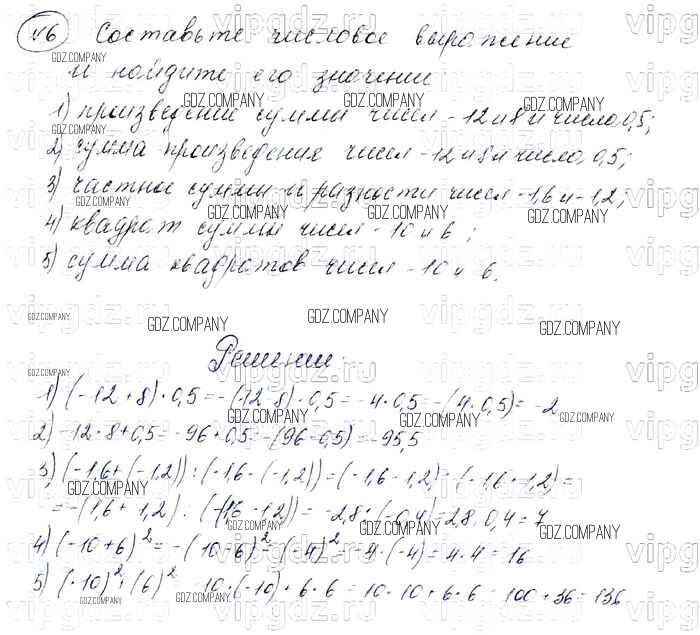 №6 Составьте числовое выражение
и найдите его значении
1) произведение суммы чисел -12 и 8 и число 0,5;
2) сумма произведения чисел -12 и 8 и число 0,5;
3) частное суммы и разности чисел -1,6 и -1,2;
4) квадрат суммы чисел -10 и 6;
5) сумма квадратов чисел -10 и 6.
Решении.
1) (-12+8)·0,5=-(12-8)·0,5=-4·0,5=-(4·0,5)=-2
2) -12·8+0,5=-96+0,5=-(96-0,5)=-95,5
3) (-1,6+(-1,2)):(-1,6-(-1,2))=(-1,6-1,2):(-1,6+1,2)=
=-(1,6+1,2):(-(1,6-1,2))=-2,8:(-0,4)=2,8:0,4=7
4) (-10+6)²=-(10-6)²=(-4)²=-4·(-4)=4·4=16
5) (-10)²+(6)² -10·(-10)+6·6=10·10+6·6=100+36=136
GDZ.COMPANY
vipgdz.ru